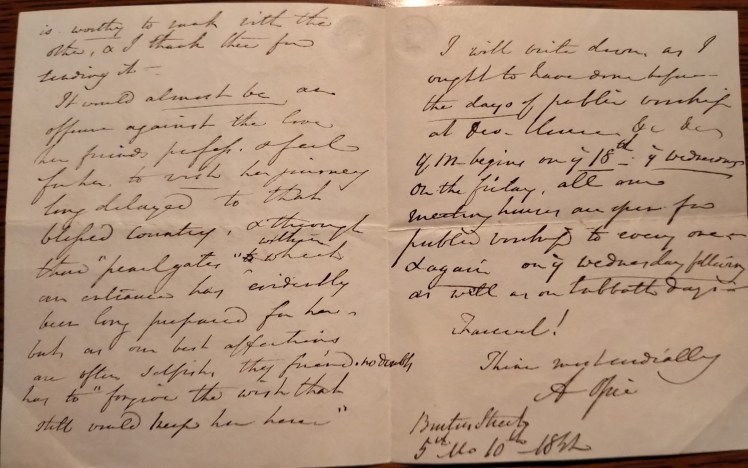 is worthy to rank with the
other, & I thank thee for
sending it -
It would almost be an
offence against the love
her friends profess. & feel
for her. to wish her journey
long delayed to that
blessed country, & through
those "pearl gates" within which
an entrance has evidently
been long prepared for her -
but, as our best affections
are often selfish, thy friend. no doubt,
has to "forgive the wish that
still would keep her here"
I will write down, as I
ought to have done before
the days of public worship
at
Y M begins on y 18th. y wednesday
on the friday, all our
meeting houses are open for
public worship to every one -
& again on y wednesday following
as well as on Sabbath days -
Farewell!
Thine most cordially
A Opie
5th Mo 10th